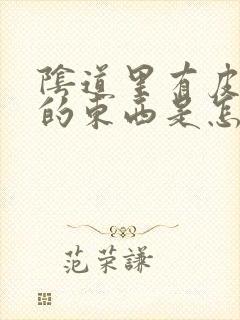 陰道里有皮
的東西是怎
范荣謙